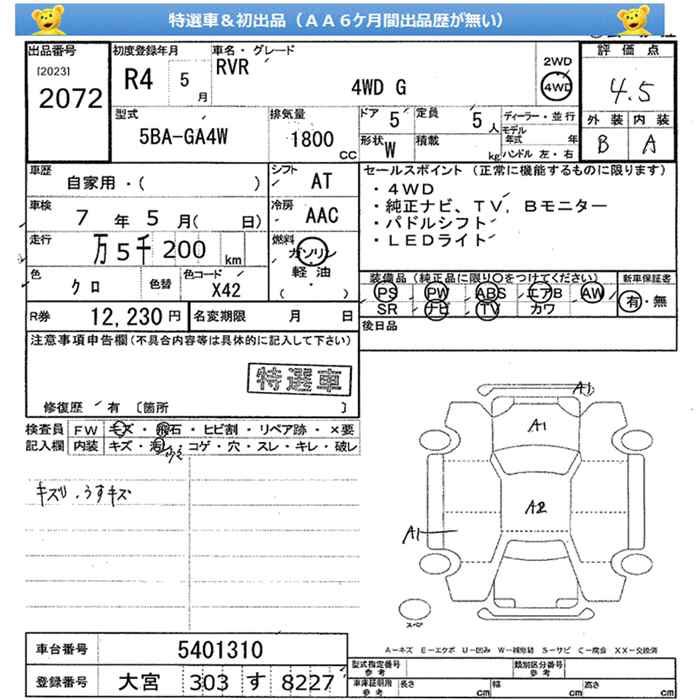 特選車＆初出品（ＡＡ６ケ月間出品歴が無い）
出品番号
[2023]
2072
初度登録年月
R4 5 月
車名・グレード
RVR
4WD G
2WD
4WD
評価点
4.5
外装 内装
B A
型式
5BA-GA4W
排気量
1800 CC
ドア 5
定員 5 人
形状 W
積載 kg
ディーラー・並行
モデル年式 年
ハンドル 左・右
車歴
自家用・( )
シフト AT
車検
7 年 5 月( 日)
冷房 AAC
走行
万 5 千 200 km
燃料
ガソリン
軽油
・( )
色
クロ
色替
色コード
X42
セールスポイント（正常に機能するものに限ります）
・４ＷＤ
・純正ナビ、ＴＶ，Ｂモニター
・パドルシフト
・ＬＥＤライト
装備品（純正品に限り○をつけてください）
新車保証書
PS PW ABS エアB AW
有・無
SR ナビ TV カワ
後日品
R券 12,230 円
名変期限 月 日
注意事項申告欄(不具合内容等は具体的に記入して下さい)
特選車
修復歴 有 〔箇所 〕
検査員
記入欄
FW キズ・飛石・ヒビ割・リペア跡・×要
内装 キズ・汚れ・コゲ・穴・スレ・キレ・破レ
キズU．うすキズ
A1
A1
A2
A1
スペア
A－キズ E－エクボ U－凹み W－補修跡 S－サビ C－腐食 XX－交換済
車台番号 5401310
登録番号 大宮 303 す 8227
型式指定番号
参考
類別区分番号
参考
車庫証明用
参考
長さ cm 幅 cm 高さ cm